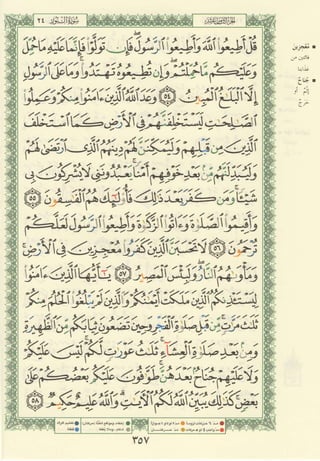 الجزء الثامن عشر
سورة النور ٢٤
قُلْ أَطِيعُوا۟ ٱللَّهَ وَأَطِيعُوا۟ ٱلرَّسُولَ فَإِن تَوَلَّوْا۟ فَإِنَّمَا عَلَيْهِ مَا حُمِّلَ
وَعَلَيْكُم مَّا حُمِّلْتُمْ وَإِن تُطِيعُوهُ تَهْتَدُوا۟ وَمَا عَلَى ٱلرَّسُولِ
إِلَّا ٱلْبَلَٰغُ ٱلْمُبِينُ ٥٤ وَعَدَ ٱللَّهُ ٱلَّذِينَ ءَامَنُوا۟ مِنكُمْ وَعَمِلُوا۟
ٱلصَّٰلِحَٰتِ لَيَسْتَخْلِفَنَّهُمْ فِى ٱلْأَرْضِ كَمَا ٱسْتَخْلَفَ
ٱلَّذِينَ مِن قَبْلِهِمْ وَلَيُمَكِّنَنَّ لَهُمْ دِينَهُمُ ٱلَّذِى ٱرْتَضَىٰ لَهُمْ
وَلَيُبَدِّلَنَّهُم مِّنۢ بَعْدِ خَوْفِهِمْ أَمْنًا يَعْبُدُونَنِى لَا يُشْرِكُونَ بِى
شَيْـًٔا وَمَن كَفَرَ بَعْدَ ذَٰلِكَ فَأُو۟لَٰٓئِكَ هُمُ ٱلْفَٰسِقُونَ ٥٥
وَأَقِيمُوا۟ ٱلصَّلَوٰةَ وَءَاتُوا۟ ٱلزَّكَوٰةَ وَأَطِيعُوا۟ ٱلرَّسُولَ لَعَلَّكُمْ
تُرْحَمُونَ ٥٦ لَا تَحْسَبَنَّ ٱلَّذِينَ كَفَرُوا۟ مُعْجِزِينَ فِى ٱلْأَرْضِ
وَمَأْوَىٰهُمُ ٱلنَّارُ وَلَبِئْسَ ٱلْمَصِيرُ ٥٧ يَٰٓأَيُّهَا ٱلَّذِينَ ءَامَنُوا۟
لِيَسْتَـْٔذِنكُمُ ٱلَّذِينَ مَلَكَتْ أَيْمَٰنُكُمْ وَٱلَّذِينَ لَمْ يَبْلُغُوا۟ ٱلْحُلُمَ مِنكُمْ
ثَلَٰثَ مَرَّٰتٍ مِّن قَبْلِ صَلَوٰةِ ٱلْفَجْرِ وَحِينَ تَضَعُونَ ثِيَابَكُم مِّنَ ٱلظَّهِيرَةِ
وَمِنۢ بَعْدِ صَلَوٰةِ ٱلْعِشَآءِ ثَلَٰثُ عَوْرَٰتٍ لَّكُمْ لَيْسَ عَلَيْكُمْ
وَلَا عَلَيْهِمْ جُنَاحٌۢ بَعْدَهُنَّ طَوَّٰفُونَ عَلَيْكُم بَعْضُكُمْ عَلَىٰ
بَعْضٍ كَذَٰلِكَ يُبَيِّنُ ٱللَّهُ لَكُمُ ٱلْـَٔايَٰتِ وَٱللَّهُ عَلِيمٌ حَكِيمٌ ٥٨
٣٥٧
معجزين
فائتين من
عذابنا
جناح
إثم أو
حرج